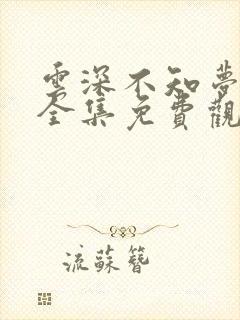 雲深不知夢
全集免費觀
流蘇簪